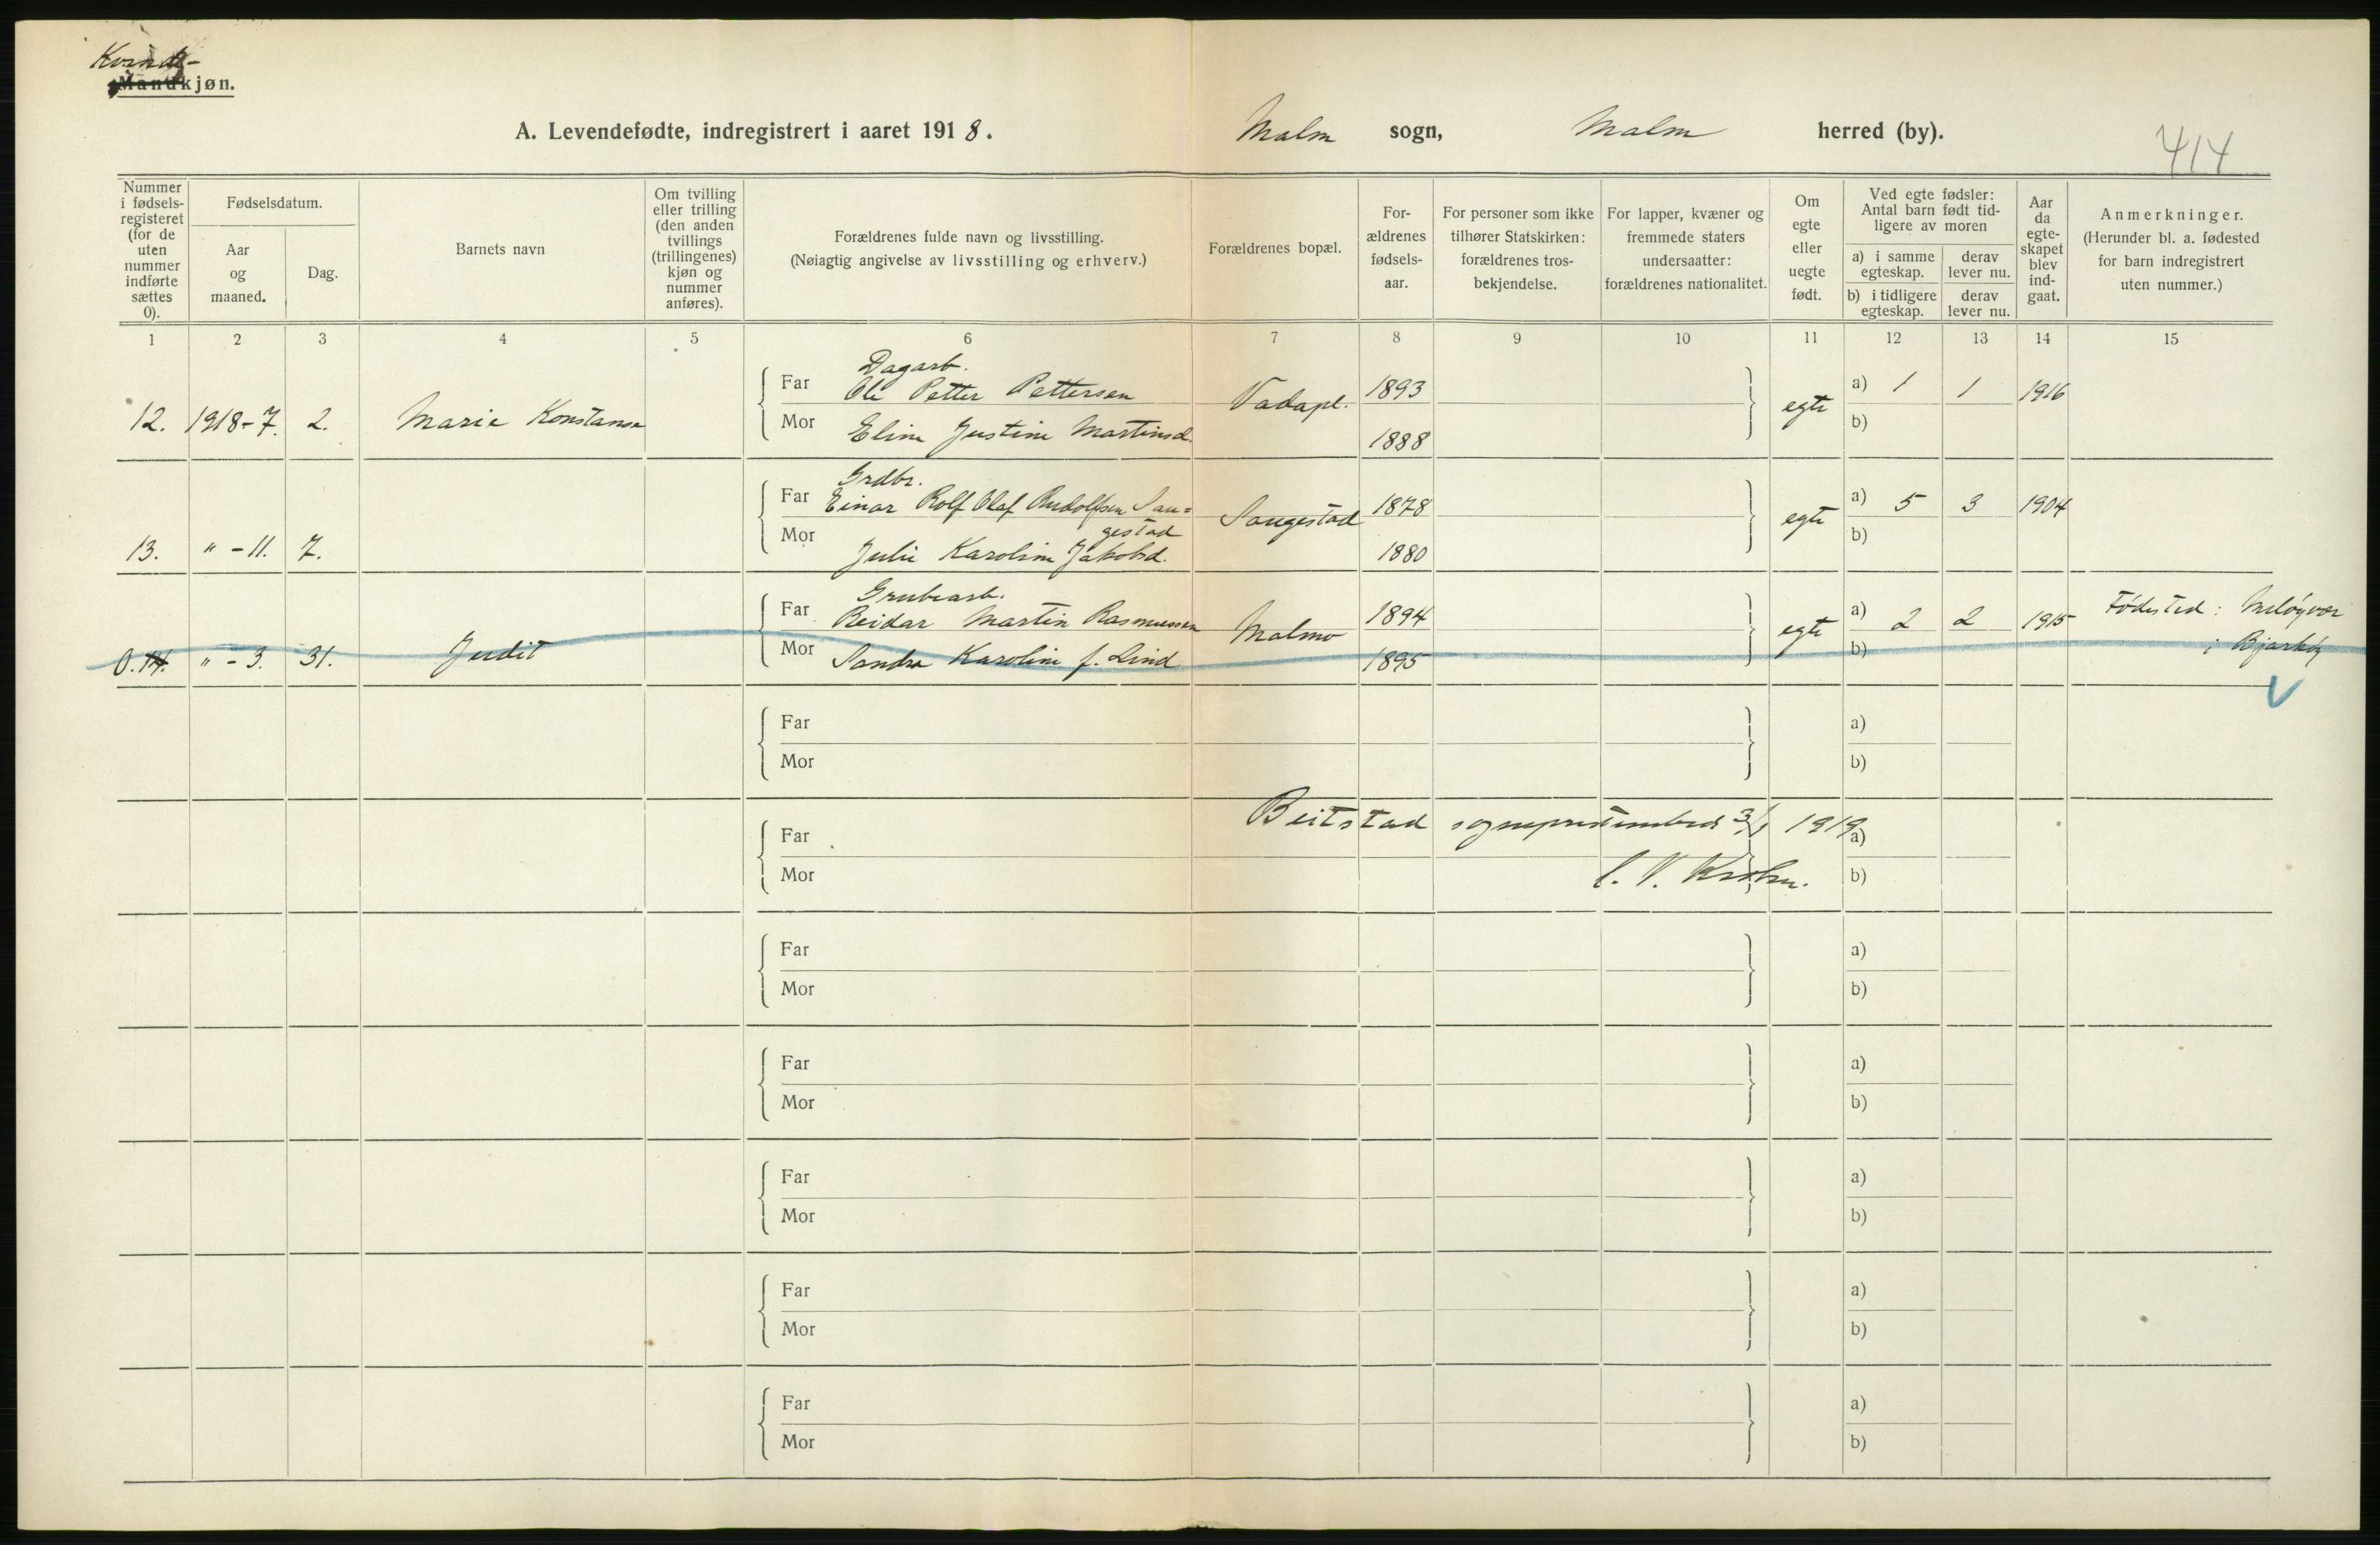 Kvinde-
Mandkjøn.
A. Levendefødte, indregistrert i aaret 1918. Malm sogn, Malm herred (by).
414
Nummer i fødsels-registeret (for de uten nummer indførte sættes 0).
Fødselsdatum.
Aar og maaned.
Dag.
Barnets navn
Om tvilling eller trilling (den anden tvillings (trillingenes) kjøn og nummer anføres).
Forældrenes fulde navn og livsstilling.
(Nøiagtig angivelse av livsstilling og erhverv.)
Forældrenes bopæl.
For-ældrenes fødsels-aar.
For personer som ikke tilhører Statskirken: forældrenes tros-bekjendelse.
For lapper, kvæner og fremmede staters undersaatter: forældrenes nationalitet.
Om egte eller uegte født.
Ved egte fødsler: Antal barn født tid-ligere av moren
a) i samme egteskap.
derav lever nu.
b) i tidligere egteskap.
derav lever nu.
Aar da egte-skapet blev ind-gaat.
Anmerkninger.
(Herunder bl. a. fødested for barn indregistrert uten nummer.)
1 2 3 4 5 6 7 8 9 10 11 12 13 14 15
Dagarb.
Far Ole Petter Pettersen 1893 a) 1 1 1916
12. 1918-7. 2. Marie Konstanse Vadapl. egte
Mor Eline Justine Martinsd. 1888 b)
Grdbr.
Far Einar Rolf Olaf Rudolfsen San= 1878 a) 5 3 1904
gestad Sangestad egte
13. " - 11. 7. Mor Julie Karoline Jakobsd. 1880 b)
Grubearb.
Far Reidar Martin Rasmussen 1894 a) 2 2 1915 Fødested: Meløyvær
Malmo egte
0. 14. " - 3. 31. Judit Mor Sandra Karoline f. Lind 1895 b) i Bjarkøy
Far a)
Mor b)
Beitstad sogneprestembed 3/1 1919
Far a)
C. V. Krohn.
Mor b)
Far a)
Mor b)
Far a)
Mor b)
Far a)
Mor b)
Far a)
Mor b)
Far a)
Mor b)